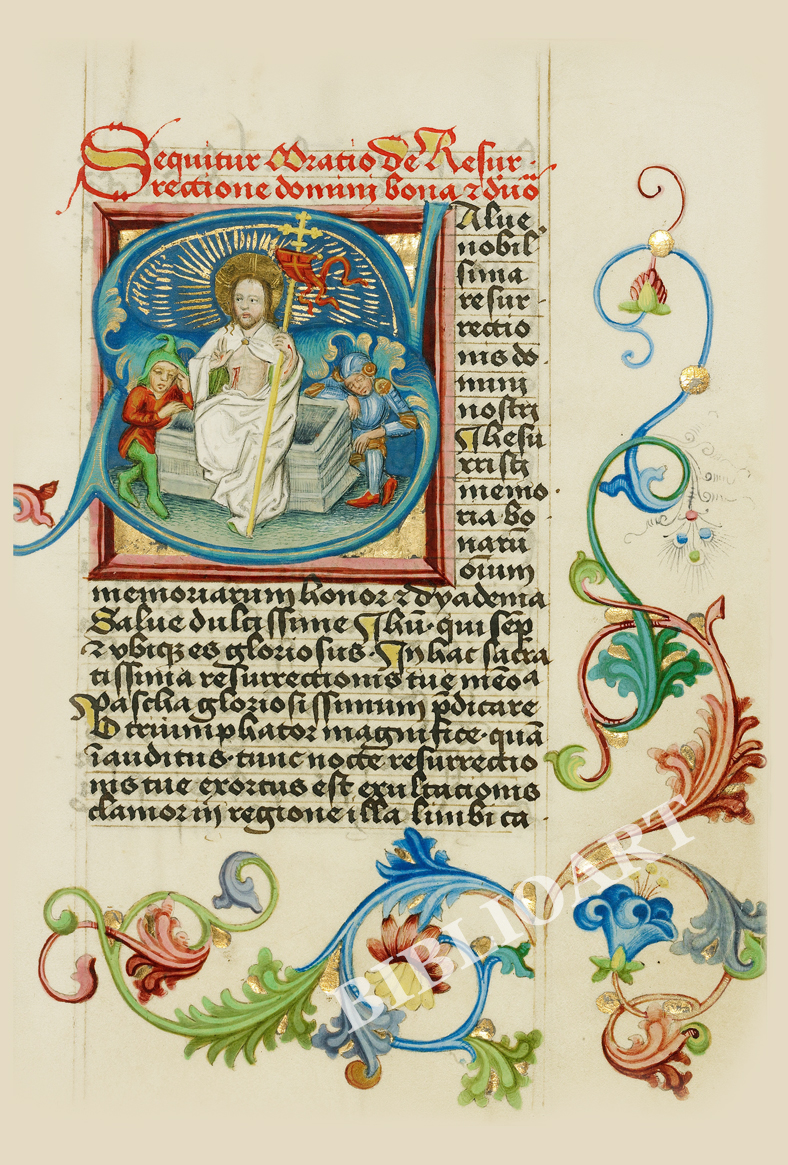 Sequitur Oratio de Resur-
rectione domini bona ⁊ duō
Salue
nobil
sima
resur-
rectio
nis do-
mini
nostri
Ihesu
xristi
memo-
ria bo
narū
oīum
memoriarum honor ⁊ dyadema
Salue dulcissime Ihū· qui semꝑ
⁊ vbiqꝫ es gloriosus· In hac sacra
tissima resurrectionis tue meo
Pascha gloriosissimum p̄dicare
O triumphator magnifice· quā
īauditus· tunc nocte resurrectio
nis tue exortus est exultationis
clamor in regione illa limbica·
BIBLIOART